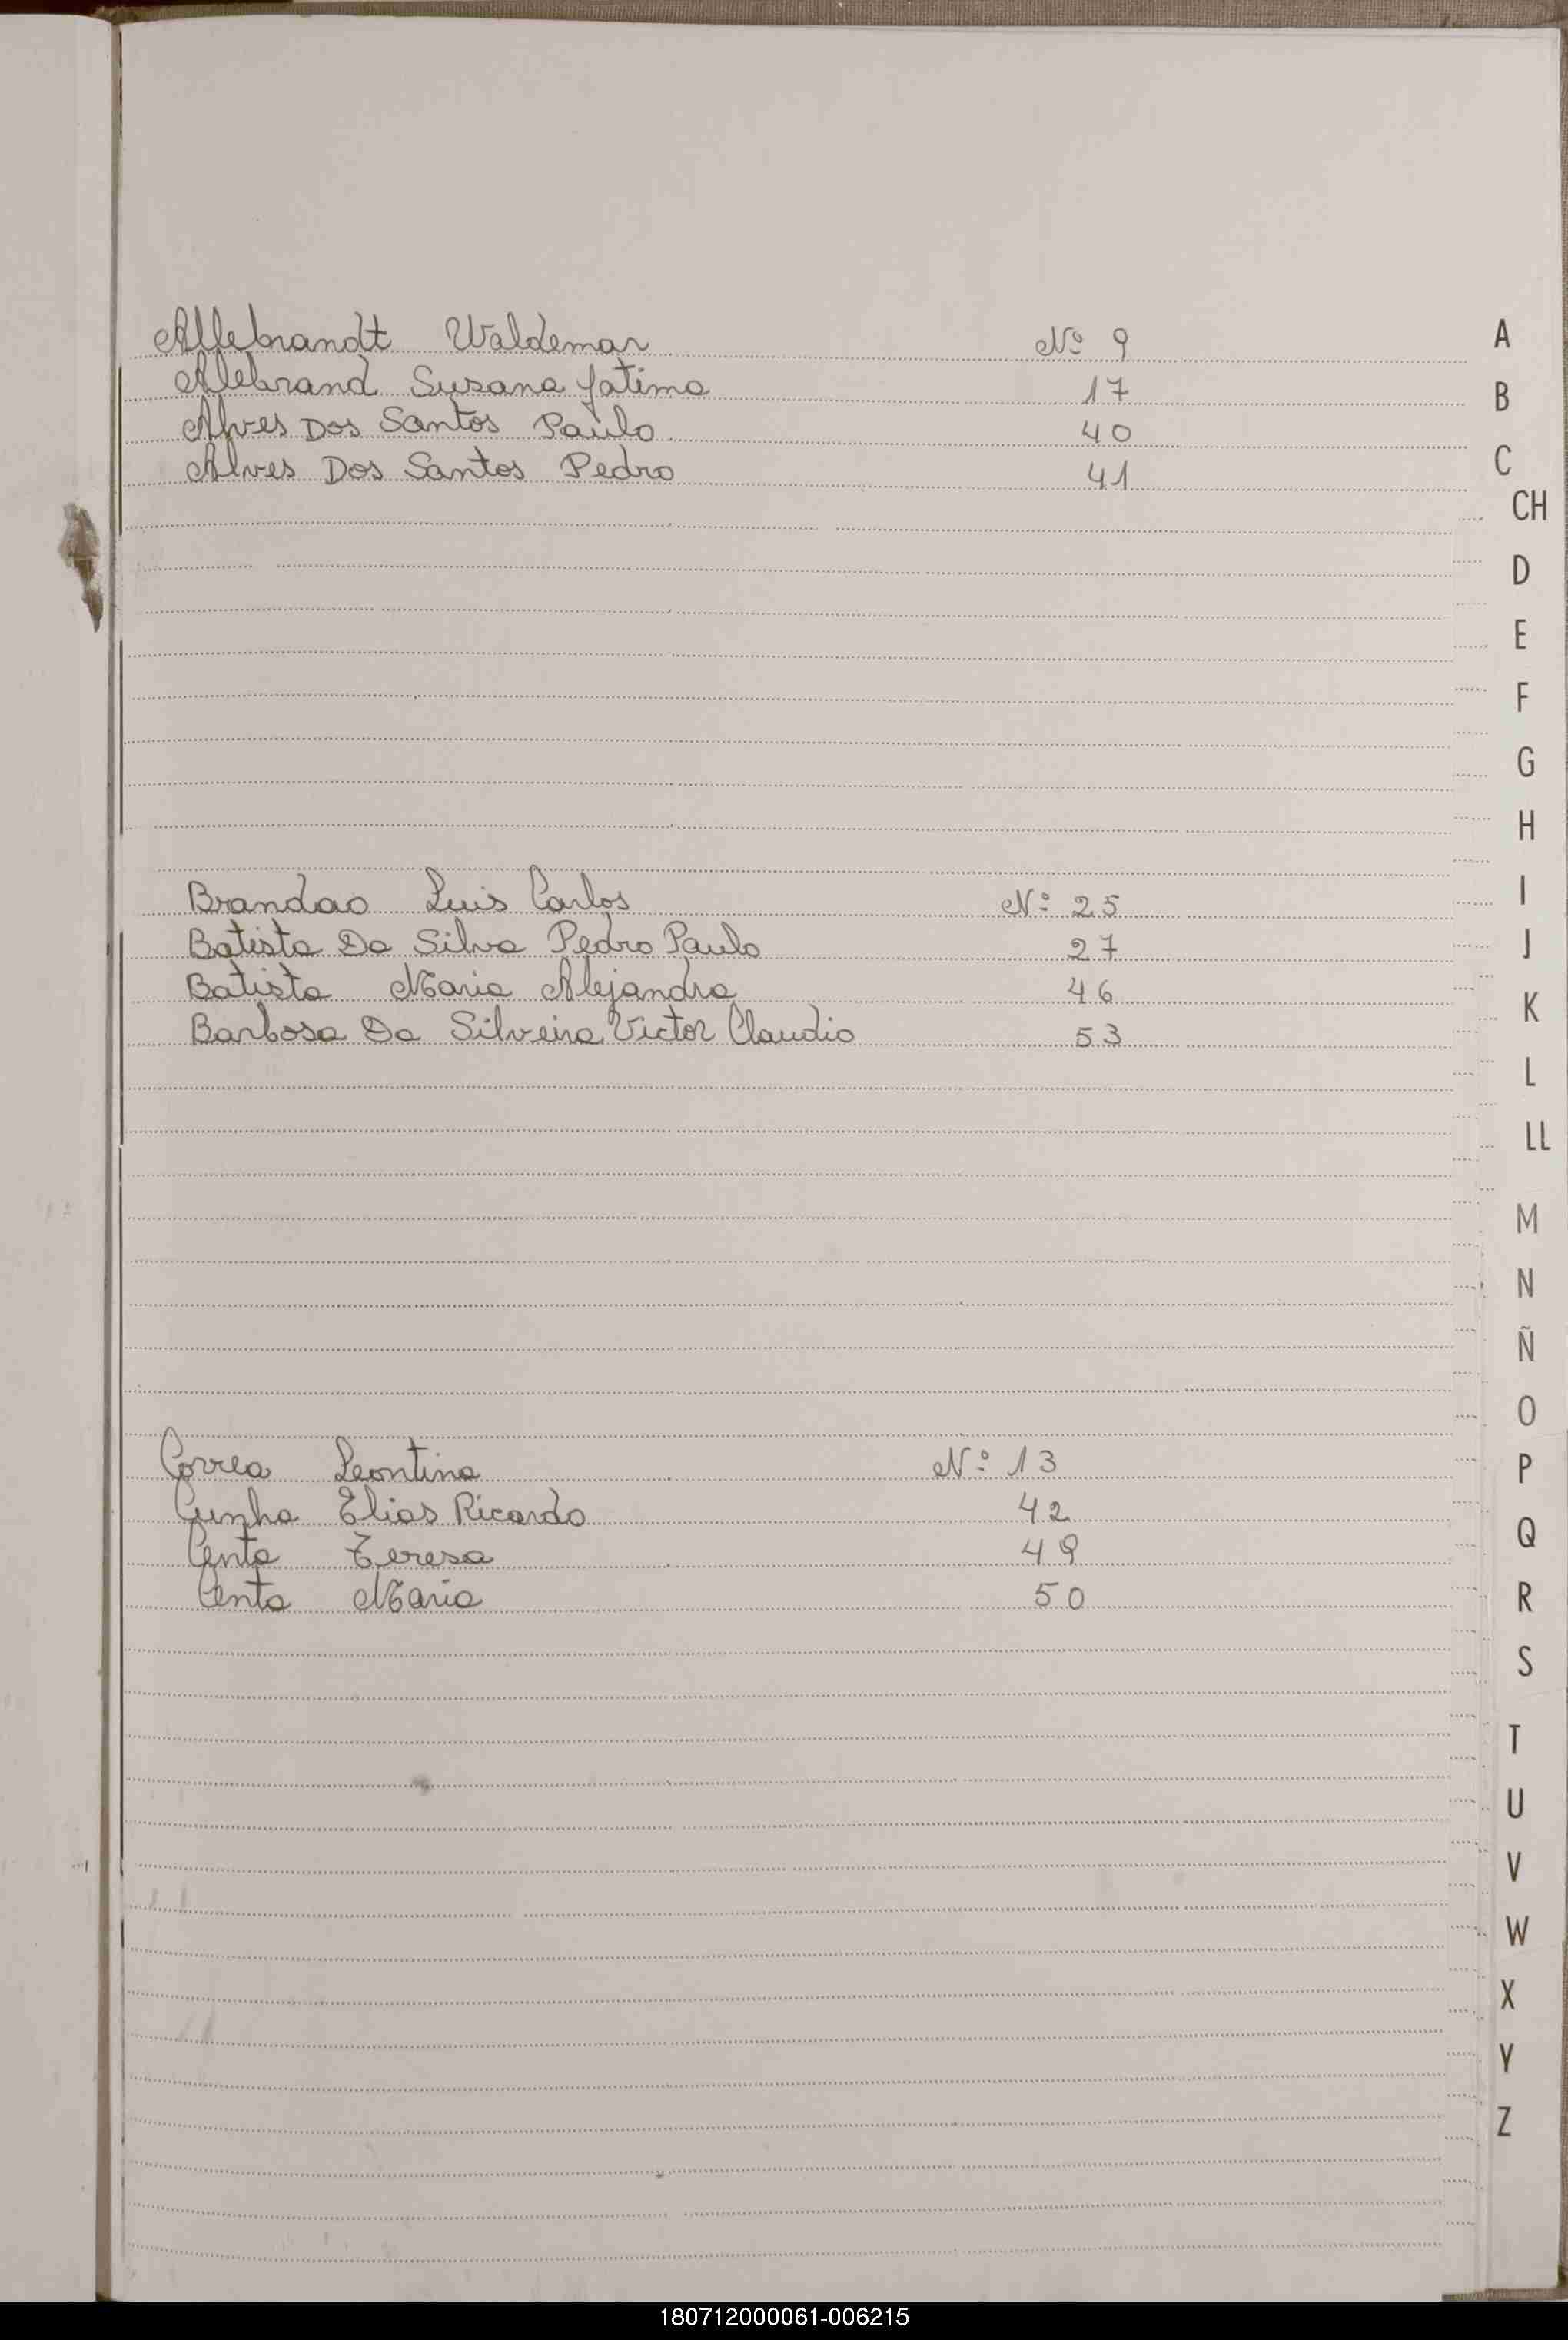 Allebrandt Waldemar Nº 9
Alebrand Susana Fatima 17
Alves Dos Santos Paulo 40
Alves Dos Santos Pedro 41
Brandao Luis Carlos Nº 25
Batista Da Silva Pedro Paulo 27
Batista Maria Alejandra 46
Barbosa Da Silveira Victor Claudio 53
Correa Leontina Nº 13
Cunha Elias Ricardo 42
Centa Teresa 49
Centa Maria 50
A
B
C
CH
D
E
F
G
H
I
J
K
L
LL
M
N
Ñ
O
P
Q
R
S
T
U
V
W
X
Y
Z
180712000061-006215